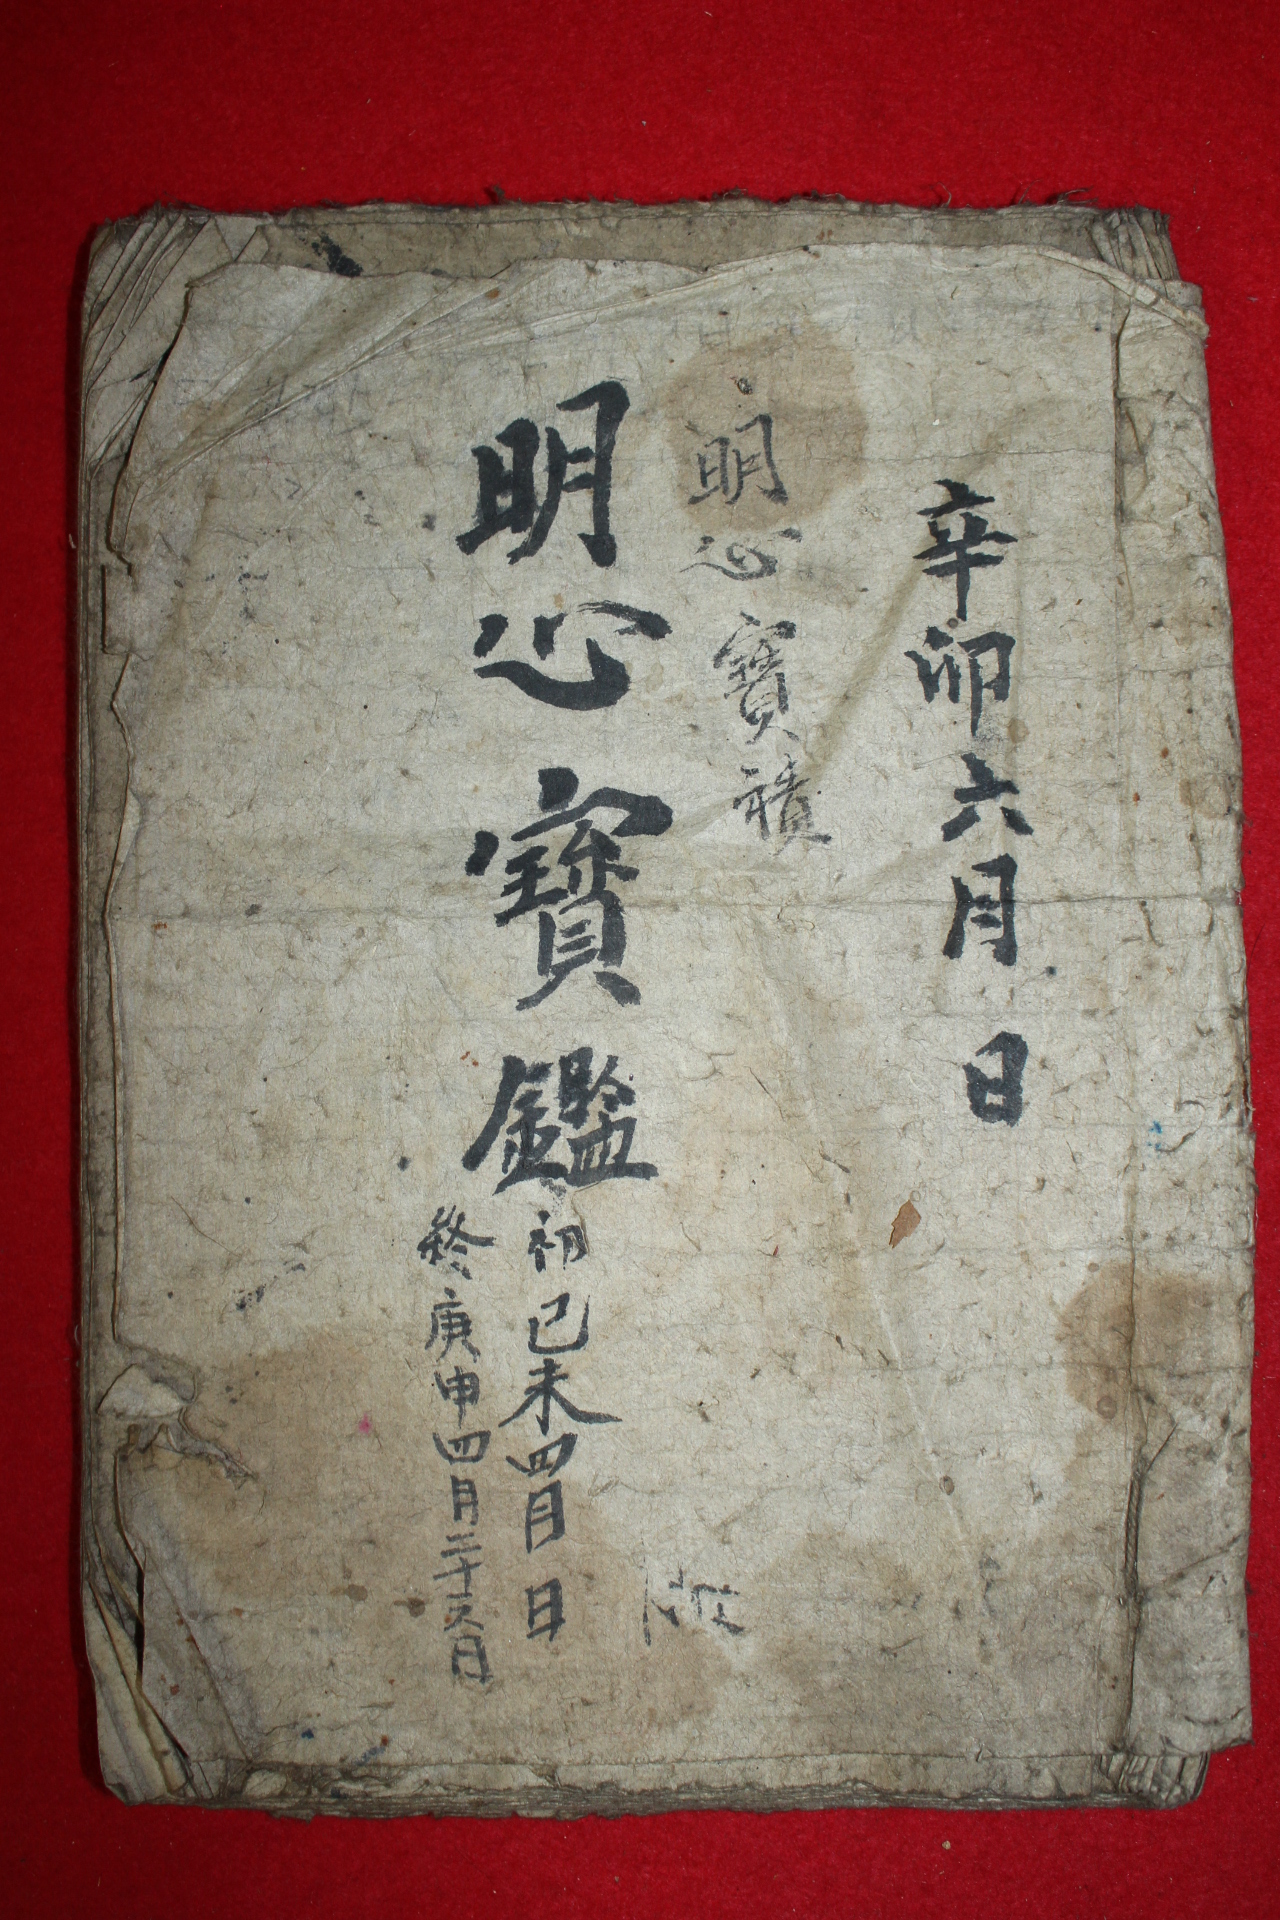 辛卯六月 日
明心寶
明心寶鑑
初己未四月 日
終庚申四月二十六日